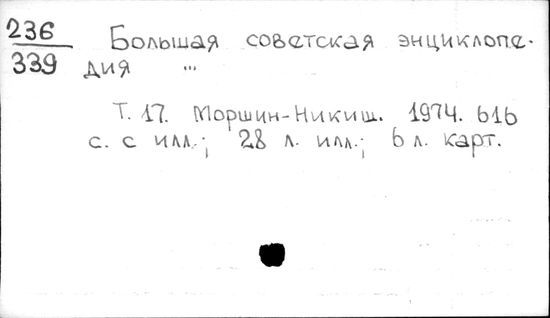 236 Большая советская энциклопе-
339 дия ...
Т. 17. Моршин-Никиш. 1974. 616
с. с илл.; 28 л. илл.; 6 л. карт.